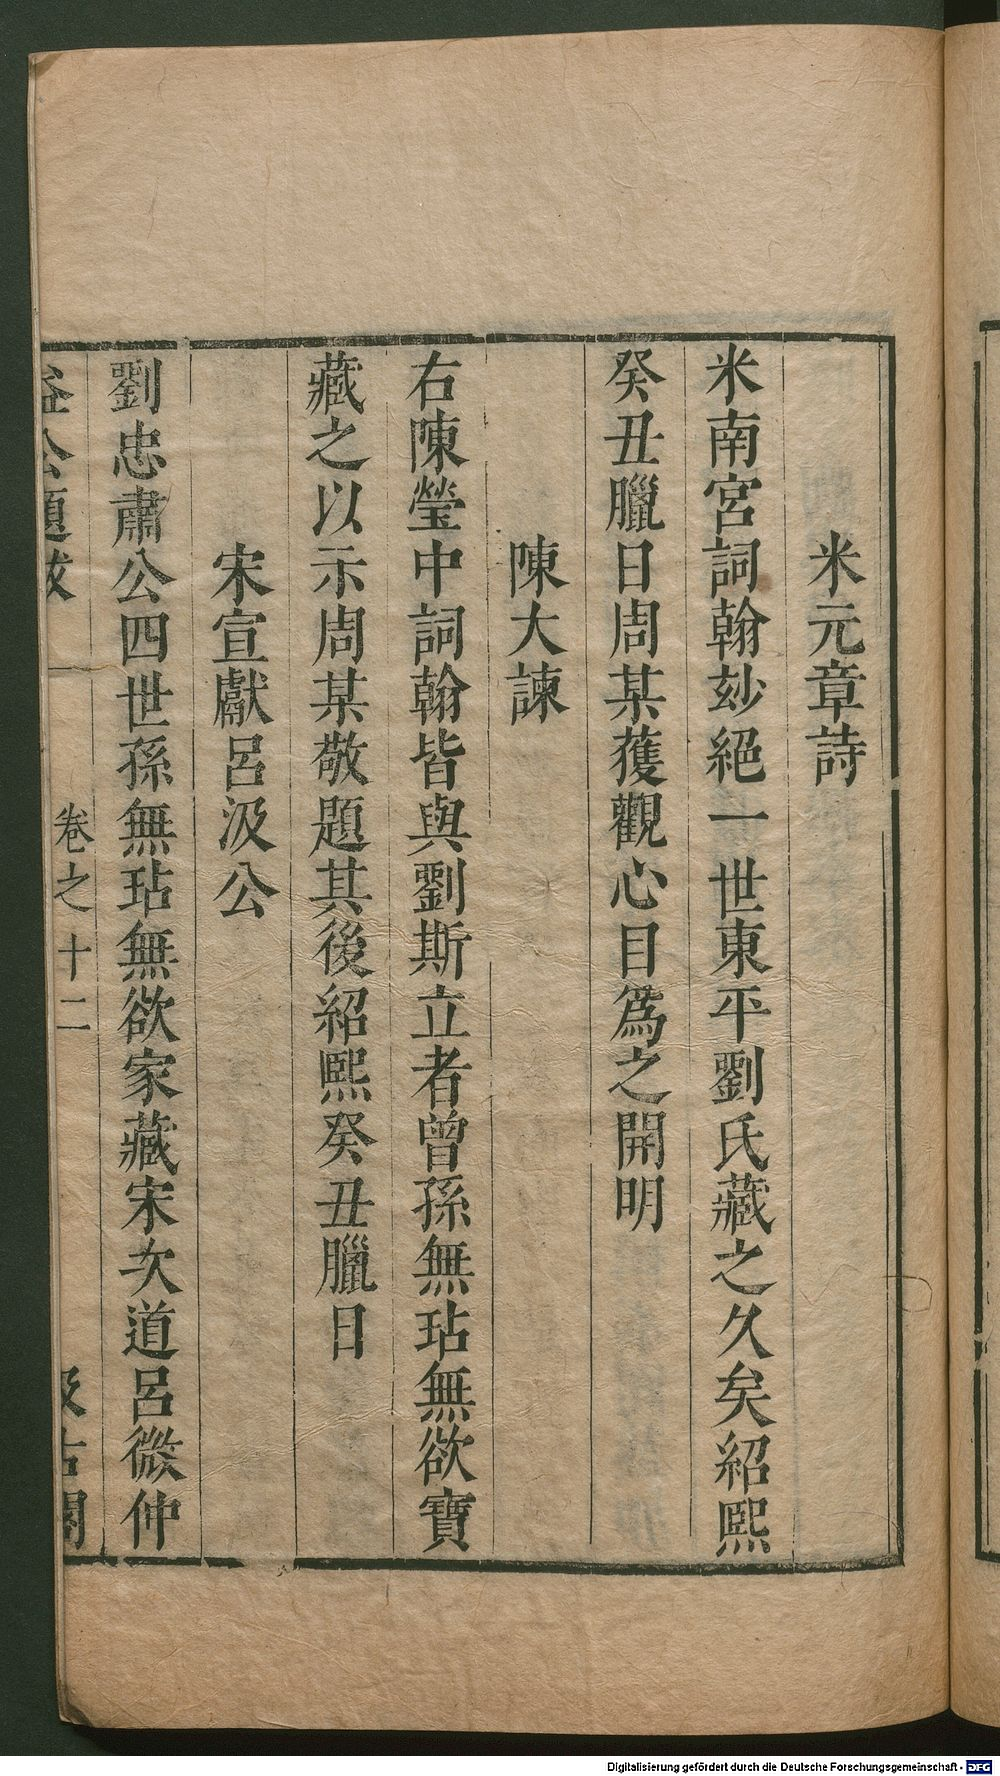 米元章詩
米南宮詞翰妙絕一世東平劉氏藏之久矣紹熙
癸丑臘日周某獲觀心目爲之開明
陳大諫
右陳瑩中詞翰皆與劉斯立者曾孫無玷無欲寶
藏之以示周某敬題其後紹熙癸丑臘日
宋宣獻呂汲公
劉忠肅公四世孫無玷無欲家藏宋次道呂微仲
益公題跋
卷之十二
汲古閣
Digitalisierung gefördert durch die Deutsche Forschungsgemeinschaft - DFG